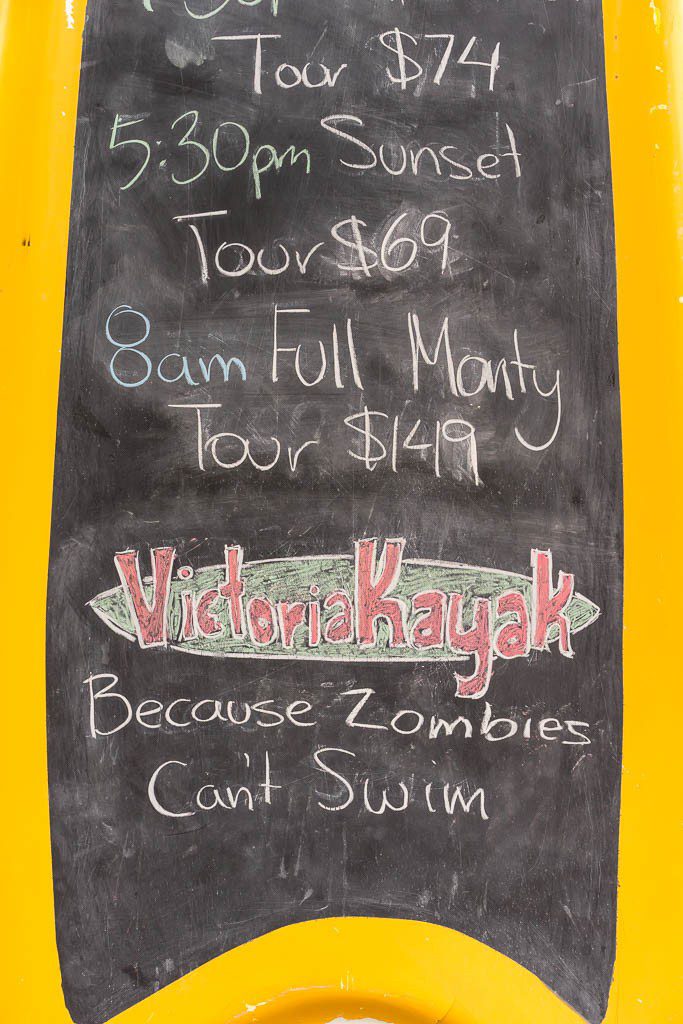 Tour $74
5:30pm Sunset
Tour $69
8am Full Monty
Tour $149
Victoria Kayak
Because Zombies
Can't Swim